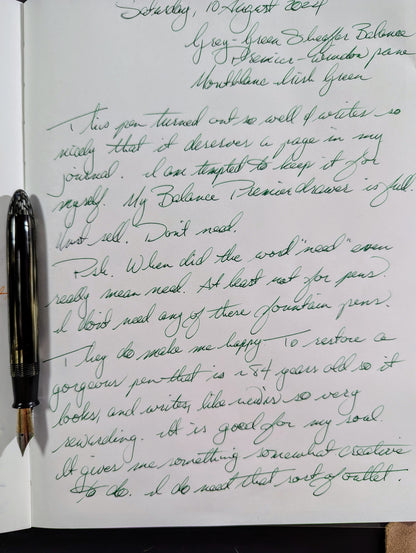 Saturday, 10 August 2024
Grey-Green Sheaffer Balance
Premier - window pane
Montblanc Irish Green
This pen turned out so well & writes so
nicely that it deserves a page in my
journal. I am tempted to keep it for
myself. My Balance Premier drawer is full.
Must sell. Don't need.
Psh. When did the word "need" even
really mean need. At least not for pens.
I don't need any of these fountain pens.
They do make me happy. To restore a
gorgeous pen that is ~84 years old so it
looks, and writes, like new is so very
rewarding. It is good for my soul.
It gives me something somewhat creative
to do. I do need that sort of outlet.